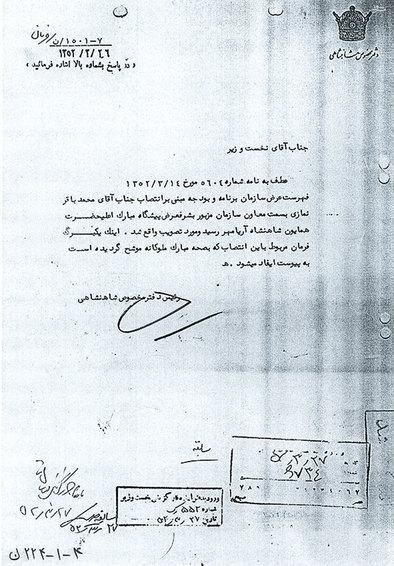 دفتر مخصوص شاهنشاهی
۷-۱۰۰۱/ن
۱۳۵۲/۳/۲۶
« در پاسخ بشماره بالا اشاره فرمائید »
جناب آقای نخست وزیر
عطف به نامه شماره ۵۶۰۴ مورخ ۱۳۵۲/۳/۱۴
فهرست عرض سازمان برنامه و بودجه مبنی بر انتصاب جناب آقای محمد باقر
نمازی بسمت معاون سازمان مزبور بشرفعرض پیشگاه مبارک اعلیحضرت
همایون شاهنشاه آریامهر رسید و مورد تصویب واقع شد . اینک یکبرگ
فرمان مربوط باین انتصاب که بصحه مبارک ملوکانه موشح گردیده است به
به پیوست ایفاد میشود . ه
رئیس دفتر مخصوص شاهنشاهی
سابقه
ورود به دفتر نخست وزیر
شماره
تاریخ ۵۲/۳/۲۷
۵۲/۳/۲۷
۴-۱-۲۲۴ ن